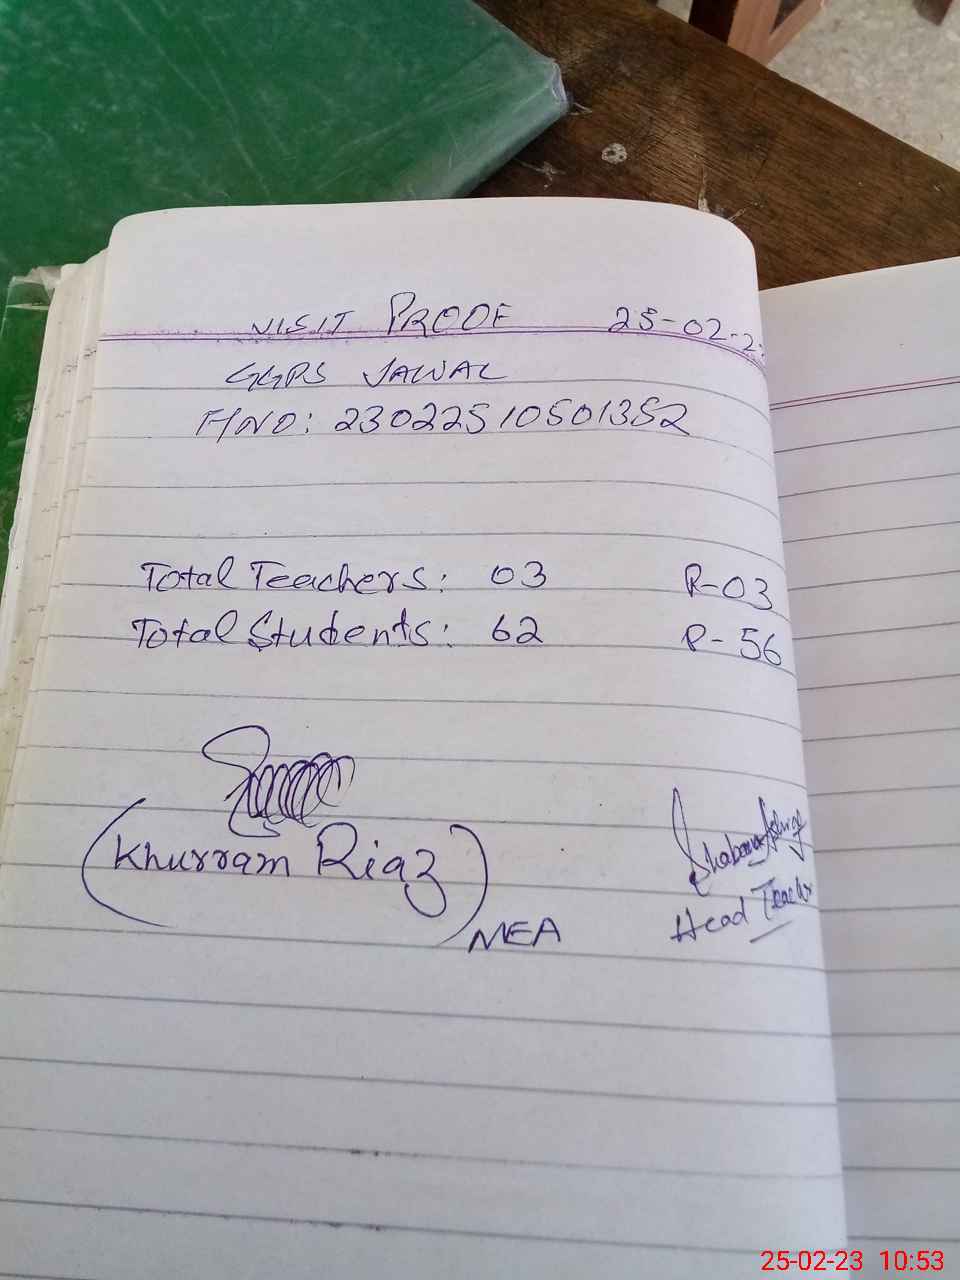 VISIT PROOF 25-02-2
GGPS JAWAL
F/NO: 23022510501352
Total Teachers: 03 P-03
Total Students: 62 P-56
(Khurram Riaz)
MEA
Shabana
Head Teacher
25-02-23 10:53